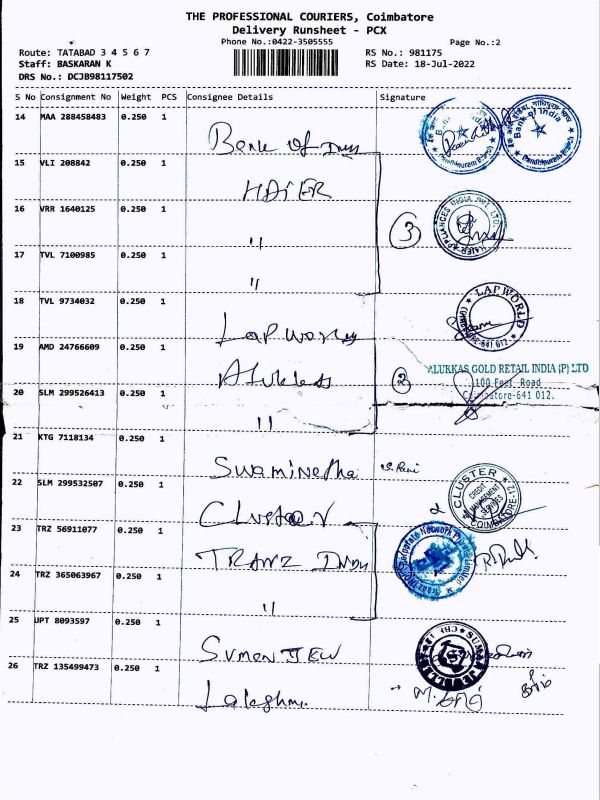 THE PROFESSIONAL COURIERS, Coimbatore
Delivery Runsheet - PCX
Phone No.:0422-3505555
Page No.:2
Route: TATABAD 3 4 5 6 7
RS No.: 981175
Staff: BASKARAN K
RS Date: 18-Jul-2022
DRS No.: DCJB98117502
S No Consignment No Weight PCS Consignee Details Signature
14 MAA 288458483 0.250 1
Bank of India
Bank of India
Gandhipuram Branch
15 VLI 208842 0.250 1
HAiER
16 VRR 1640125 0.250 1
"
3
HAIER APPLIANCES INDIA PVT. LTD.
17 TVL 7100985 0.250 1
"
18 TVL 9734032 0.250 1
LAPWORLD
COIMBATORE-641 012
19 AMD 24766609 0.250 1
ALUKKAS GOLD RETAIL INDIA (P) LTD
100 Feet Road
Coimbatore-641 012.
20 SLM 299526413 0.250 1
"
2
21 KTG 7118134 0.250 1
Swaminatha
22 SLM 299532507 0.250 1
CLUSTER
CREDIT
MANAGEMENT
SERVICES
COIMBATORE-12
23 TRZ 56911077 0.250 1
TRANZ India
24 TRZ 365063967 0.250 1
"
25 UPT 8093597 0.250 1
SUMAN JEW
26 TRZ 135499473 0.250 1